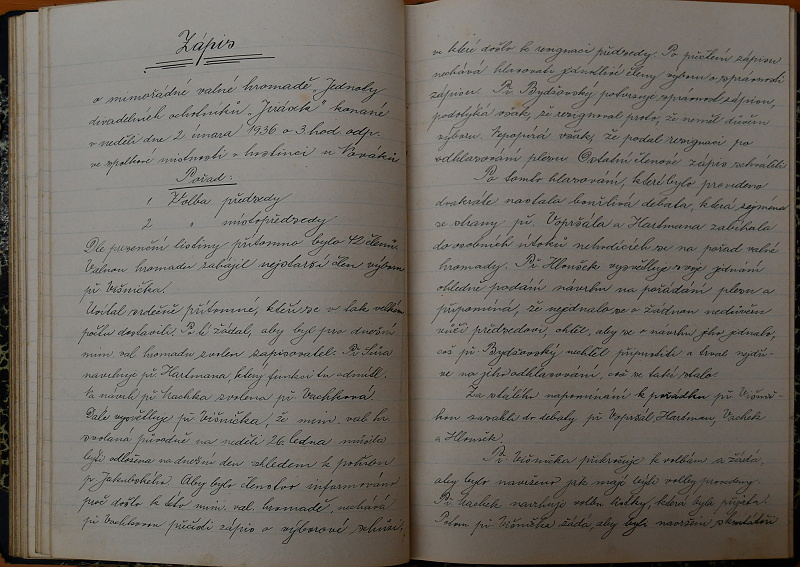 Zápis
o mimořádné valné hromadě „Jednoty
divadelních ochotníků „Jirásek“ konané
v neděli dne 2. února 1936 o 3. hod. odp.
ve spolkové místnosti v hostinci u Nováků
Pořad:
1 Volba předsedy
2 " místopředsedy
Dle presenční listiny přítomno bylo 42 členů.
Valnou hromadu zahájil nejstarší člen výboru
př. Višnička.
Uvítal srdečně přítomné, kteří se v tak velkém
počtu dostavili. Poté žádal, aby byl pro dnešní
mim. val. hromadu zvolen zapisovatel. Př. Šůra
navrhuje př. Hartmana, který funkci tu odmítl.
Na návrh př. Kachka zvolena př. Vachková.
Dále vysvětluje př. Višnička, že mim. val. hr.
svolaná původně na neděli 26. ledna musila
býti odložena na dnešní den vzhledem k pohřbu
p. Jakubského. Aby bylo členstvo informováno
proč došlo k této mim. val. hromadě, nechává
př. Vachkovou přečísti zápis o výborové schůzi,
ve které došlo k resignaci předsedy. Po přečtení zápisu
nechává hlasovati jednotlivé členy výboru o správnosti
zápisu. Př. Bydžovský potvrzuje správnost zápisu,
podotýká však, že resignoval proto, že neměl důvěru
výboru. Nepopírá však, že podal resignaci po
odhlasování plesu. Ostatní členové zápis schválili.
Po tomto hlasování, které bylo provedeno
dvakráte nastala bouřlivá debata, která zejména
se strany př. Vopršála a Hartmana zabíhala
do osobních útoků nehodících se na pořad valné
hromady. Př. Hloušek vysvětluje svoje jednání
ohledně podání návrhu na pořádání plesu a
připomíná, že nejednalo se o žádnou nedůvěru
vůči předsedovi, chtěl, aby se o návrhu jeho jednalo,
což př. Bydžovský nechtěl připustiti a trval nejdří-
ve na jeho odhlasování, což se také stalo.
Za stálého napomínání k pořádku př. Višnič-
kou zasáhli do debaty př. Vopršál, Hartman, Vachek
a Hloušek.
Př. Višnička přikročuje k volbám a žádá,
aby bylo navrženo jak mají býti volby provedeny.
Př. Kachek navrhuje volbu lístky, která byla přijata.
Potom př. Višnička žádá, aby byli navrženi skrutátoři